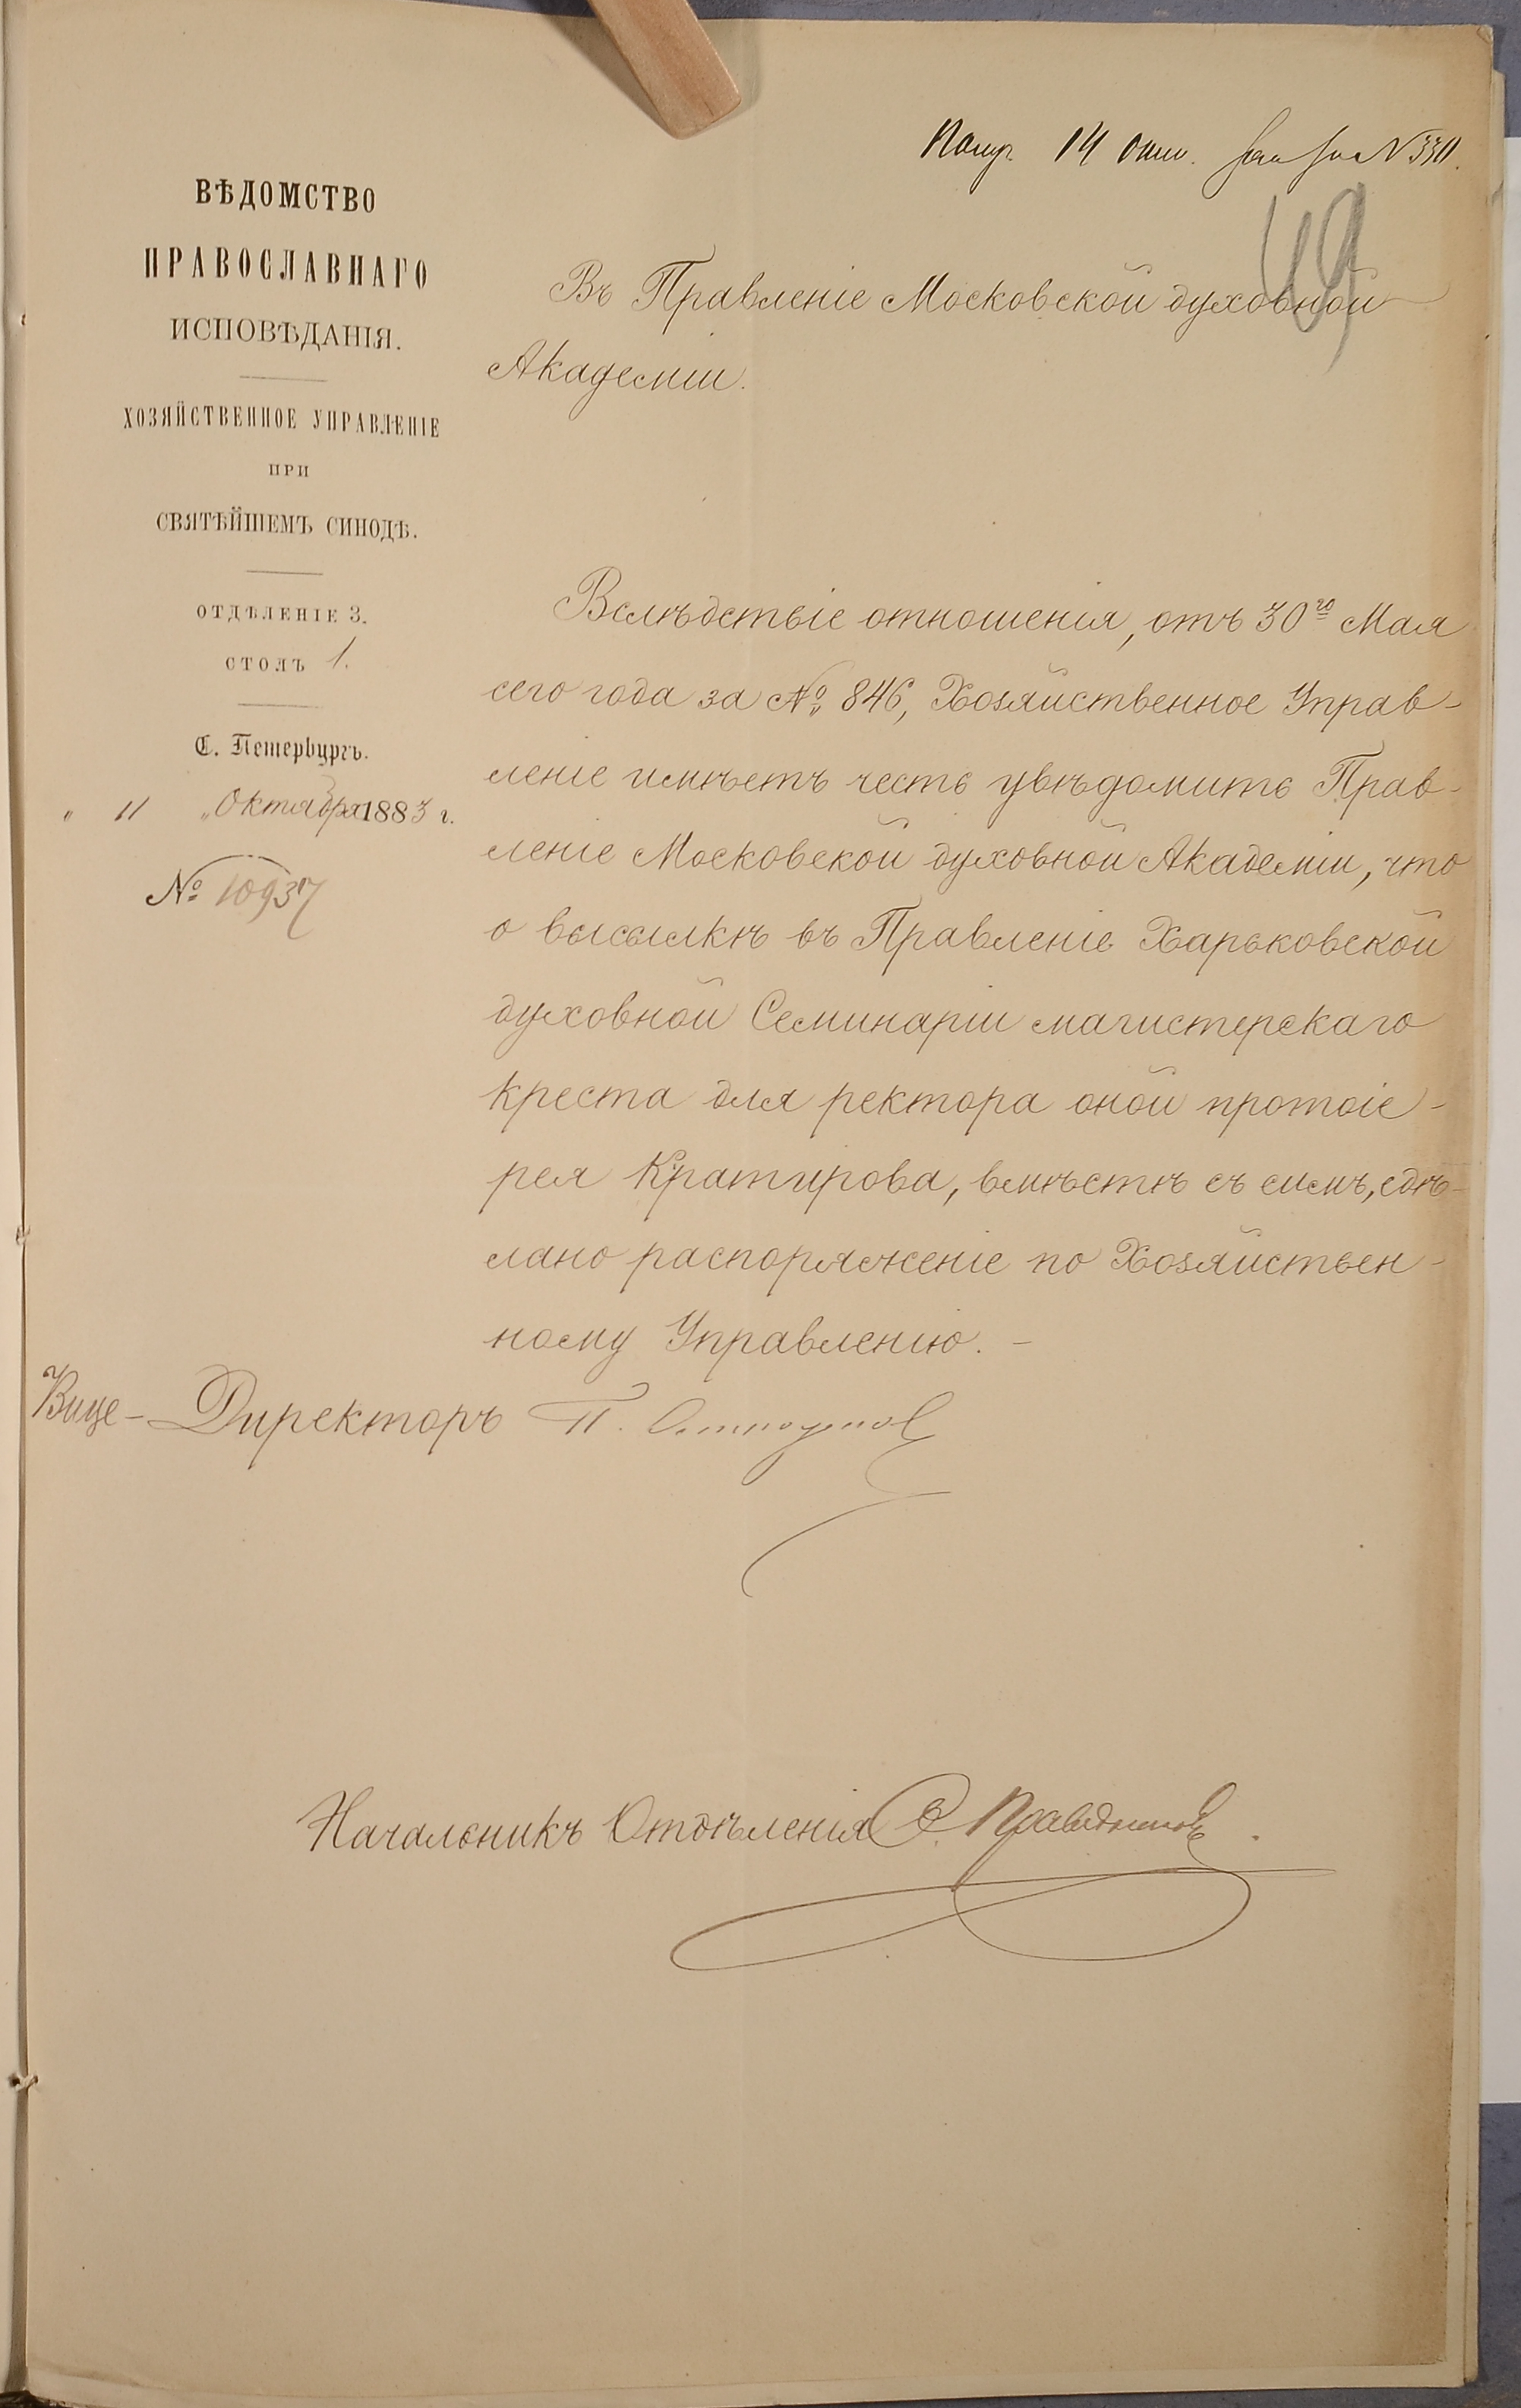 Получ. 14 Окт. № 330.
49
ВѢДОМСТВО
ПРАВОСЛАВНАГО
ИСПОВѢДАНІЯ.
ХОЗЯЙСТВЕННОЕ УПРАВЛЕНІЕ
ПРИ
СВЯТѢЙШЕМЪ СИНОДѢ.
ОТДѢЛЕНІЕ 3.
СТОЛЪ 1.
С. Петербургъ.
„ 11 „ Октября 1883 г.
№ 10937
Въ Правленіе Московской духовной
Академіи.
Вслѣдствіе отношенія, отъ 30го Мая
сего года за № 846, Хозяйственное Управ-
леніе имѣетъ честь увѣдомить Прав-
леніе Московской духовной Академіи, что
о высылкѣ въ Правленіе Харьковской
духовной Семинаріи магистерскаго
креста для ректора оной протоіе-
рея Кратирова, вмѣстѣ съ симъ, сдѣ-
лано распоряженіе по Хозяйствен-
ному Управленію. –
Вице-Директоръ П.
Начальникъ Отдѣленія